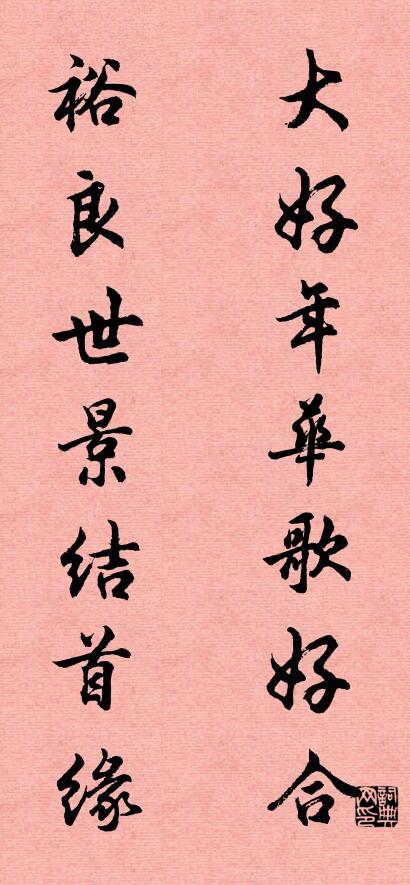 大好年華歌好合
裕良世景结首缘